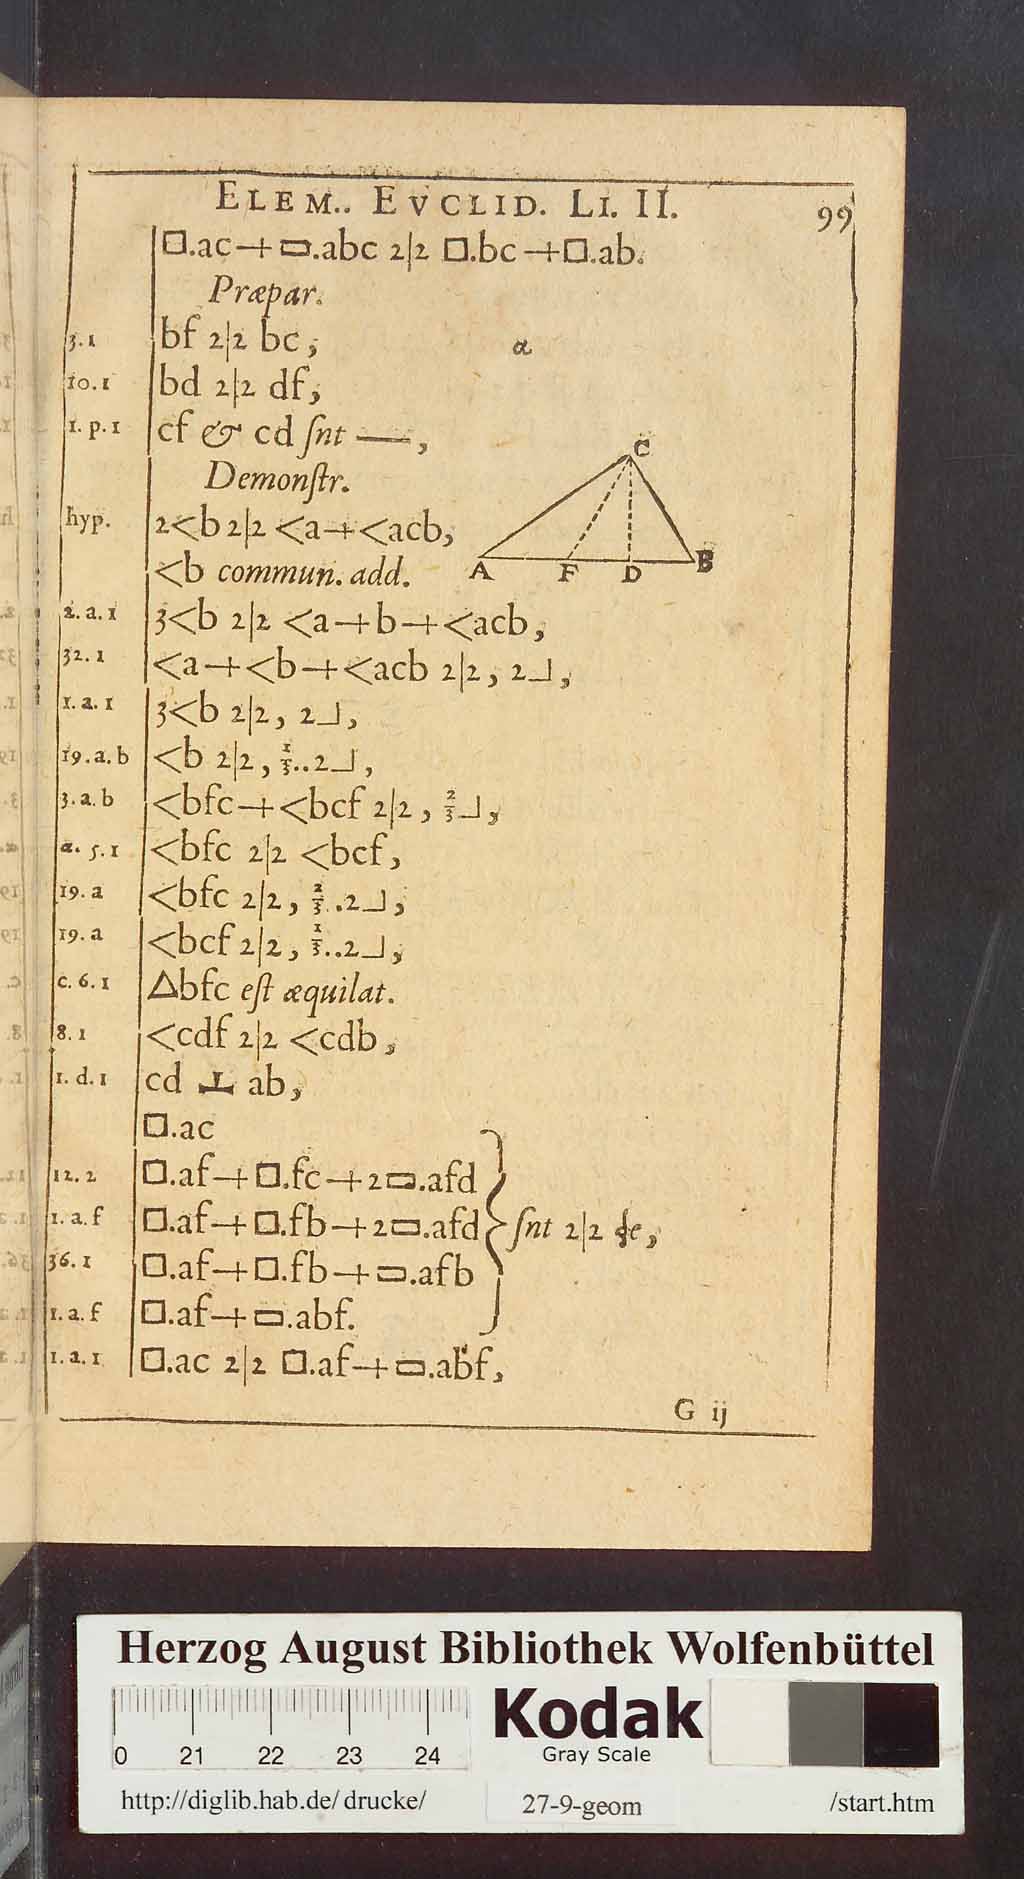 ELEM.. EVCLID. LI. II. 99
□.ac+▭.abc 2|2 □.bc+□.ab.
Præpar.
3.1 bf 2|2 bc,
a
10.1 bd 2|2 df,
1.p.1 cf & cd ſnt —,
Demonſtr.
hyp. 2<b 2|2 <a+<acb,
<b commun. add.
C
A F D B
2.a.1 3<b 2|2 <a+b+<acb,
32.1 <a+<b+<acb 2|2, 2┘,
1.a.1 3<b 2|2, 2┘,
19.a.b <b 2|2, 1/3..2┘,
3.a.b <bfc+<bcf 2|2, 2/3┘,
a.5.1 <bfc 2|2 <bcf,
19.a <bfc 2|2, 2/3.2┘,
19.a <bcf 2|2, 1/3..2┘,
c.6.1 △bfc eſt æquilat.
8.1 <cdf 2|2 <cdb,
1.d.1 cd ⊥ ab,
□.ac
12.2 □.af+□.fc+2▭.afd
1.a.f □.af+□.fb+2▭.afd } ſnt 2|2 ſe,
36.1 □.af+□.fb+▭.afb
1.a.f □.af+▭.abf.
1.a.1 □.ac 2|2 □.af+▭.abf,
G ij
Herzog August Bibliothek Wolfenbüttel
0 21 22 23 24
Kodak
Gray Scale
http://diglib.hab.de/drucke/ 27-9-geom /start.htm